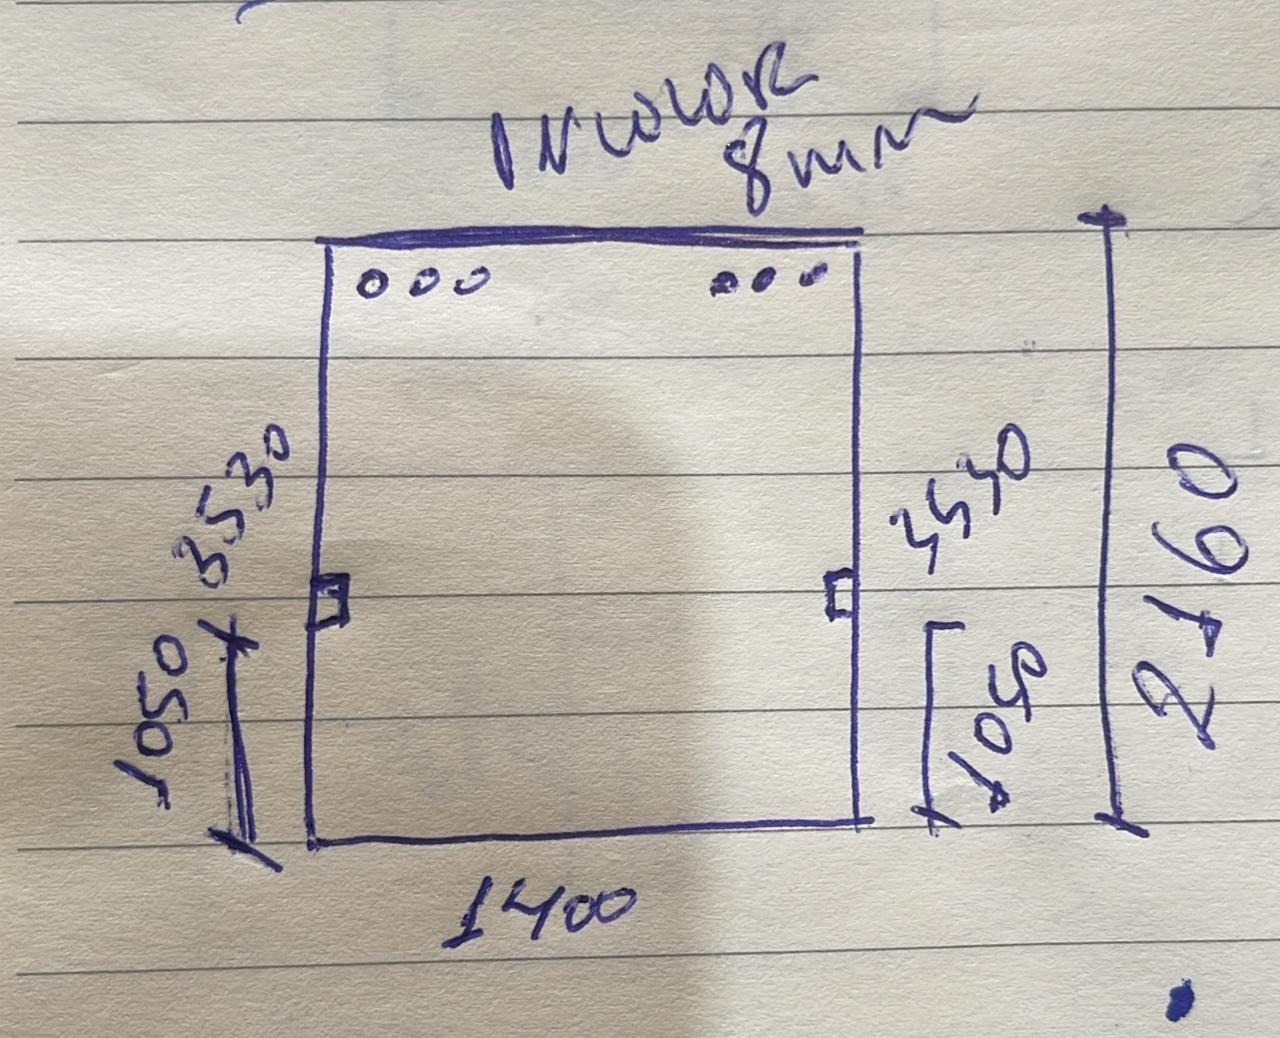 INCOLOR
8mm
3530
1050
3530
1050
2190
1400